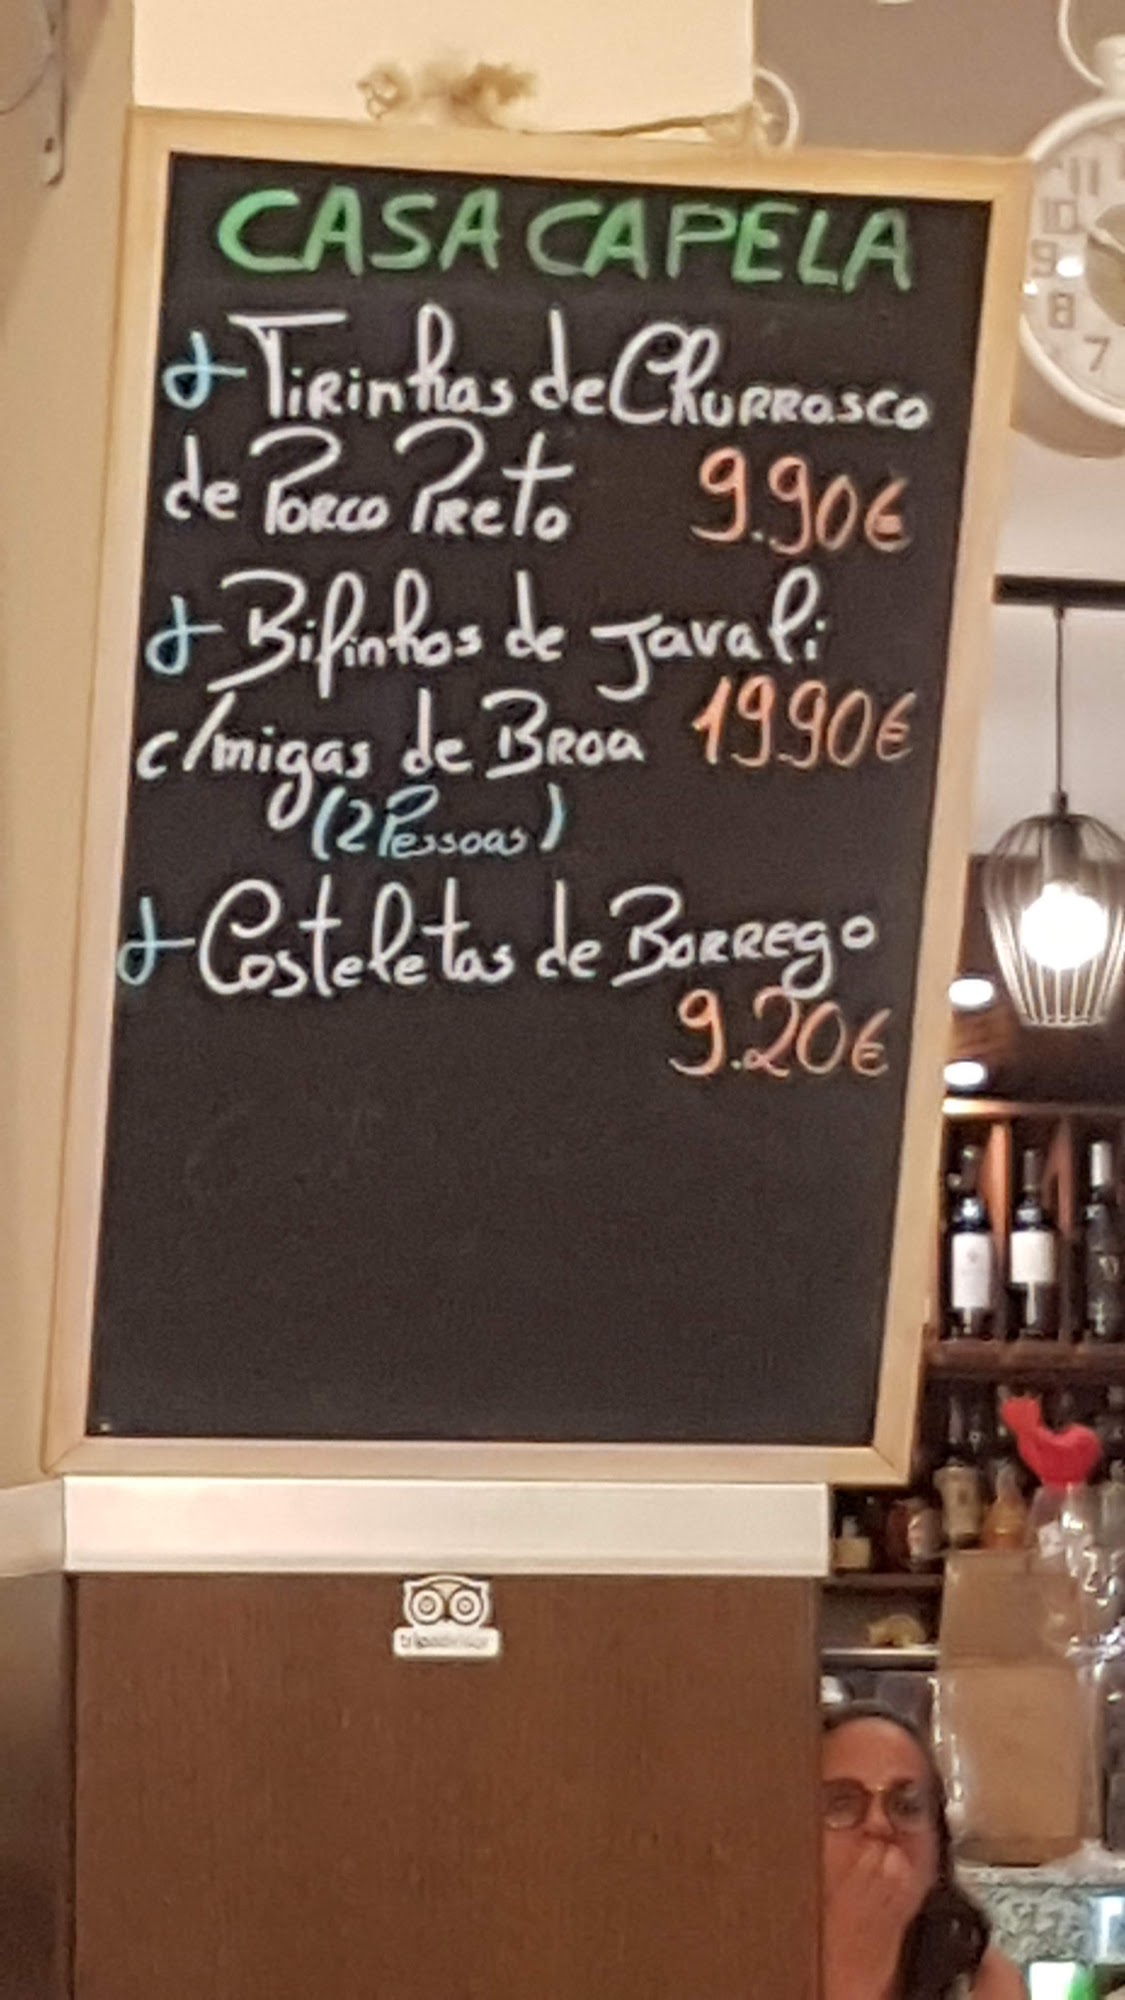 CASA CAPELA
Tirinhas de Churrasco
de Porco Preto 9.90€
Bifinhos de Javali
c/migas de Broa 19.90€
(2 Pessoas)
Costeletas de Borrego
9.20€
11
10
9
8
7
tripadvisor